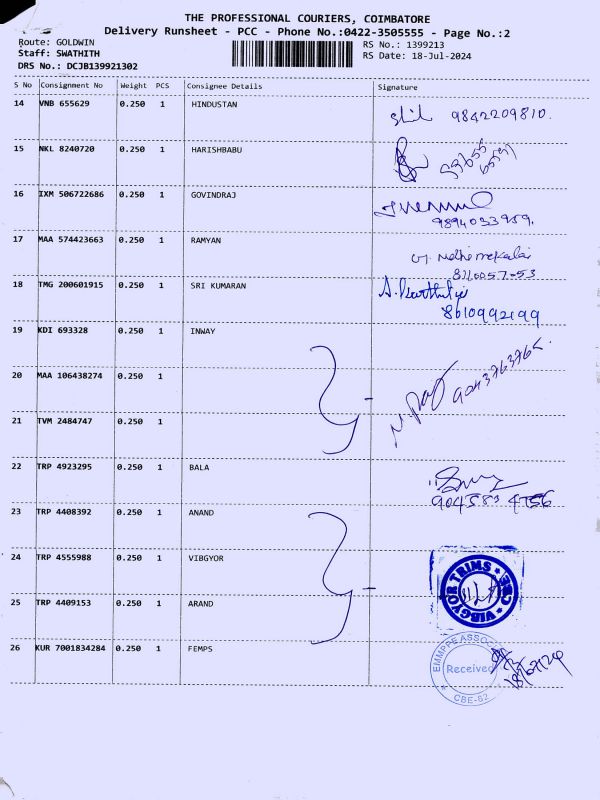 THE PROFESSIONAL COURIERS, COIMBATORE
Delivery Runsheet - PCC - Phone No.:0422-3505555 - Page No.:2
Route: GOLDWIN
RS No.: 1399213
Staff: SWATHITH
RS Date: 18-Jul-2024
DRS No.: DCJB139921302
S No Consignment No Weight PCS Consignee Details Signature
14 VNB 655629 0.250 1 HINDUSTAN 9842209810.
15 NKL 8240720 0.250 1 HARISHBABU
16 IXM 506722686 0.250 1 GOVINDRAJ
9894033959.
17 MAA 574423663 0.250 1 RAMYAN
18 TMG 200601915 0.250 1 SRI KUMARAN
8610992199
19 KDI 693328 0.250 1 INWAY
20 MAA 106438274 0.250 1
21 TVM 2484747 0.250 1
22 TRP 4923295 0.250 1 BALA
23 TRP 4408392 0.250 1 ANAND
24 TRP 4555988 0.250 1 VIBGYOR
VIBGYOR TRIMS
CBE
25 TRP 4409153 0.250 1 ARAND
26 KUR 7001834284 0.250 1 FEMPS
Received
CBE-62
18/07/24